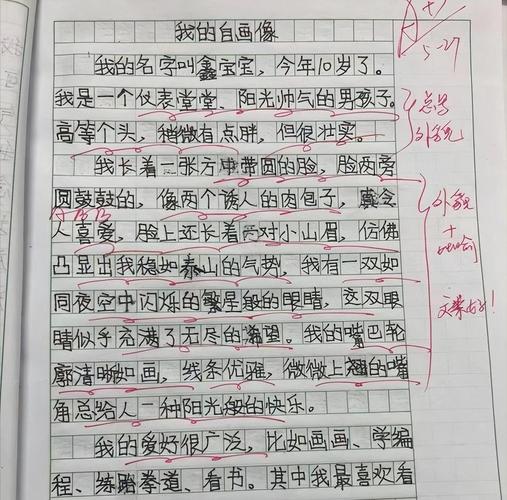 我的自画像
A+
5-27
我的名字叫鑫宝宝，今年10岁了。
我是一个仪表堂堂、阳光帅气的男孩子。
总写
外貌
高等个头，稍微有点胖，但很壮实。
我长着一张方中带圆的脸，脸两旁
圆鼓鼓的，像两个诱人的肉包子，真令
外貌
+
比喻
人喜爱，脸上还长着两对小山眉，仿佛
凸显出我稳如泰山的气势，我有一双如
同夜空中闪烁的繁星般的眼睛，这双眼
文采好！
睛似乎充满了无尽的希望。我的嘴巴轮
廓清晰如画，线条优雅，微微上翘的嘴
角总给人一种阳光般的快乐。
我的爱好很广泛，比如画画、学编
程、练跆拳道、看书。其中我最喜欢看